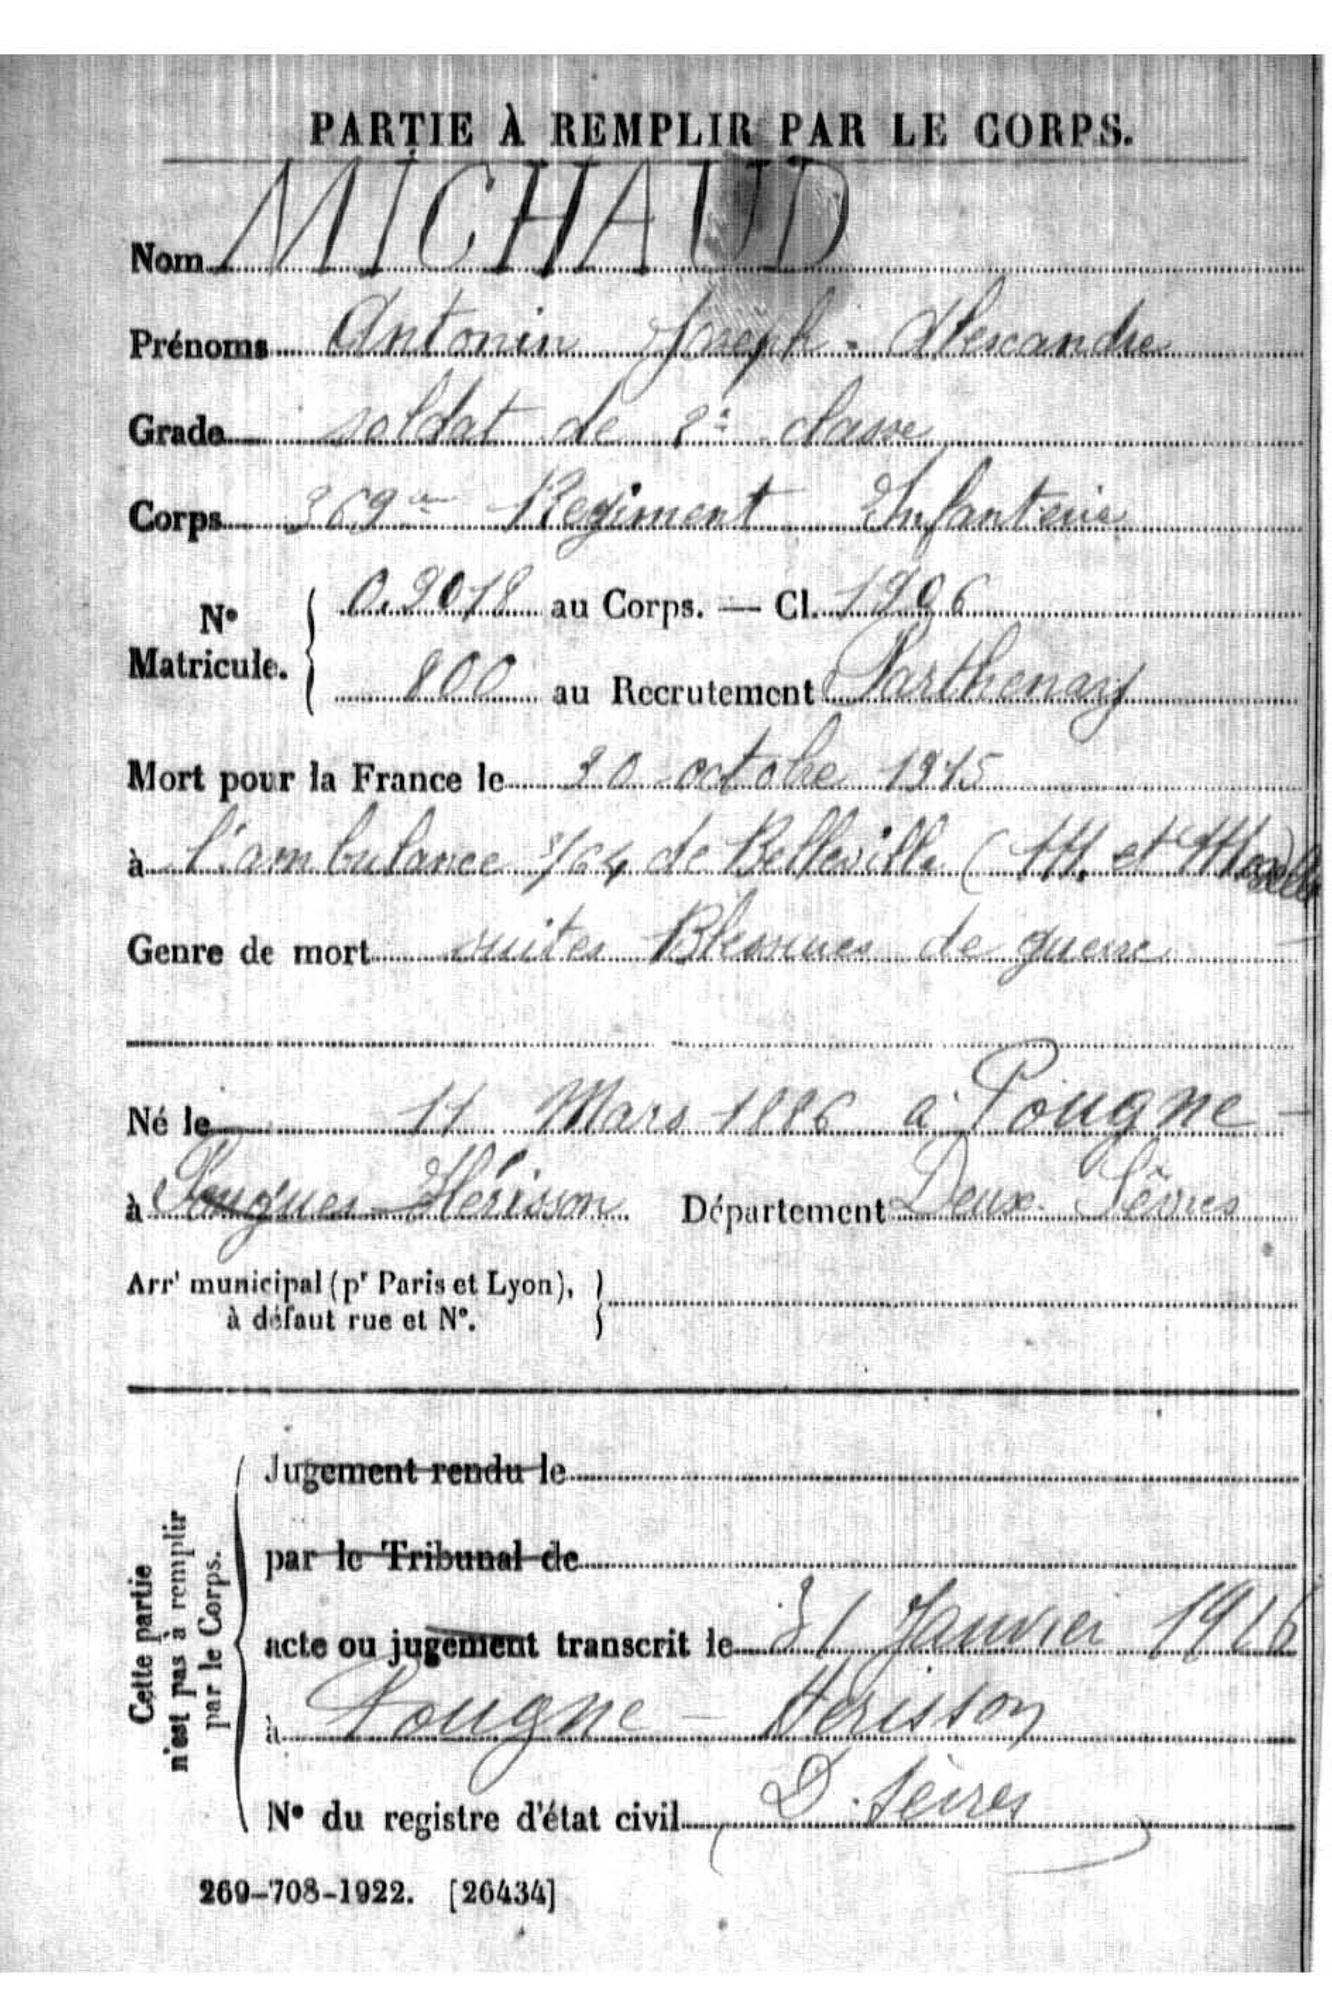 PARTIE À REMPLIR PAR LE CORPS.
Nom MICHAUD
Prénoms Antonin Joseph - Alexandre
Grade soldat de 2e classe
Corps 369me Regiment Infanterie
No Matricule. { 0.2018 au Corps. — Cl. 1906
800 au Recrutement Parthenay
Mort pour la France le 20 octobre 1915
à l'ambulance 3/64 de Belleville (M. et Moselle
Genre de mort suites Blessures de guerre
Né le 11 Mars 1886 à Pougne -
à Pougnes-Hérisson Département Deux-Sèvres
Arrt municipal (pr Paris et Lyon), }
à défaut rue et No.
Cette partie
n'est pas à remplir
par le Corps.
Jugement rendu le
par le Tribunal de
acte ou jugement transcrit le 31 Janvier 1916
à Pougne - Hérisson
No du registre d'état civil (D. Sèvres)
269-708-1922. [26434]